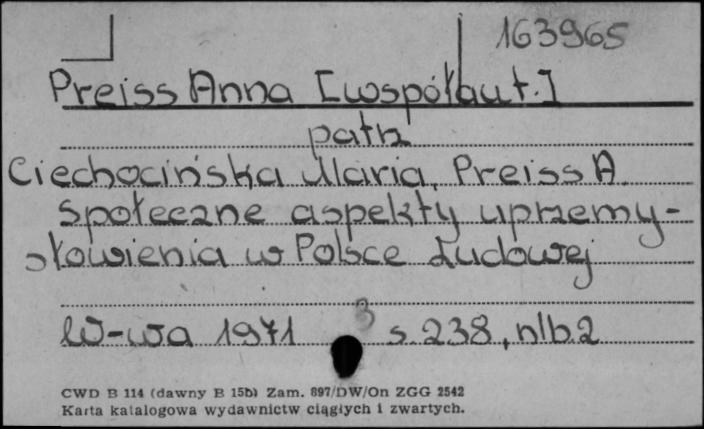 163965
Preiss Anna [współaut.]
patrz
Ciechocińska Maria, Preiss A.
Społeczne aspekty uprzemy-
słowienia w Polsce Ludowej
3
W-wa 1971 s. 238, nlb. 2
CWD B 114 (dawny B 15b) Zam. 897/DW/On ZGG 2542
Karta katalogowa wydawnictw ciągłych i zwartych.